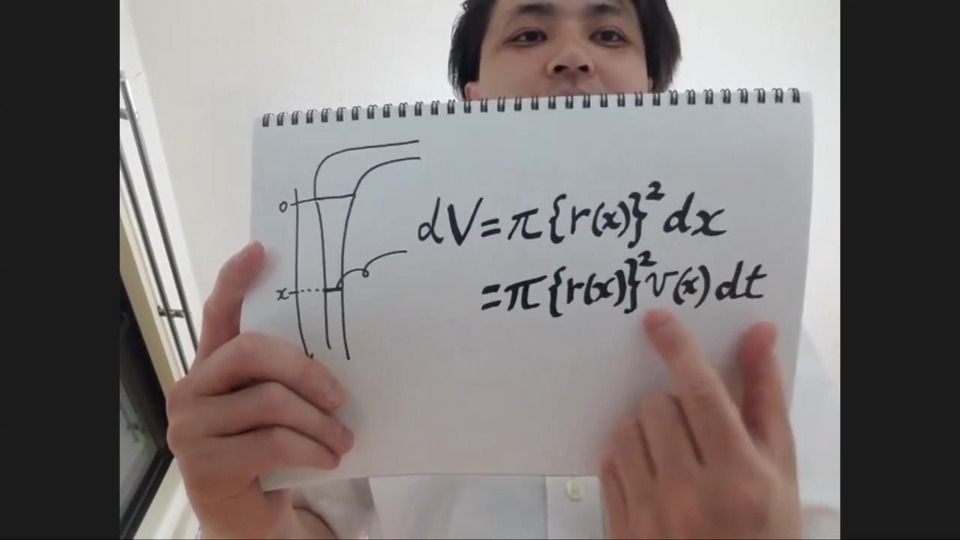 0
x
dV=π{r(x)}²dx
=π{r(x)}²v(x)dt